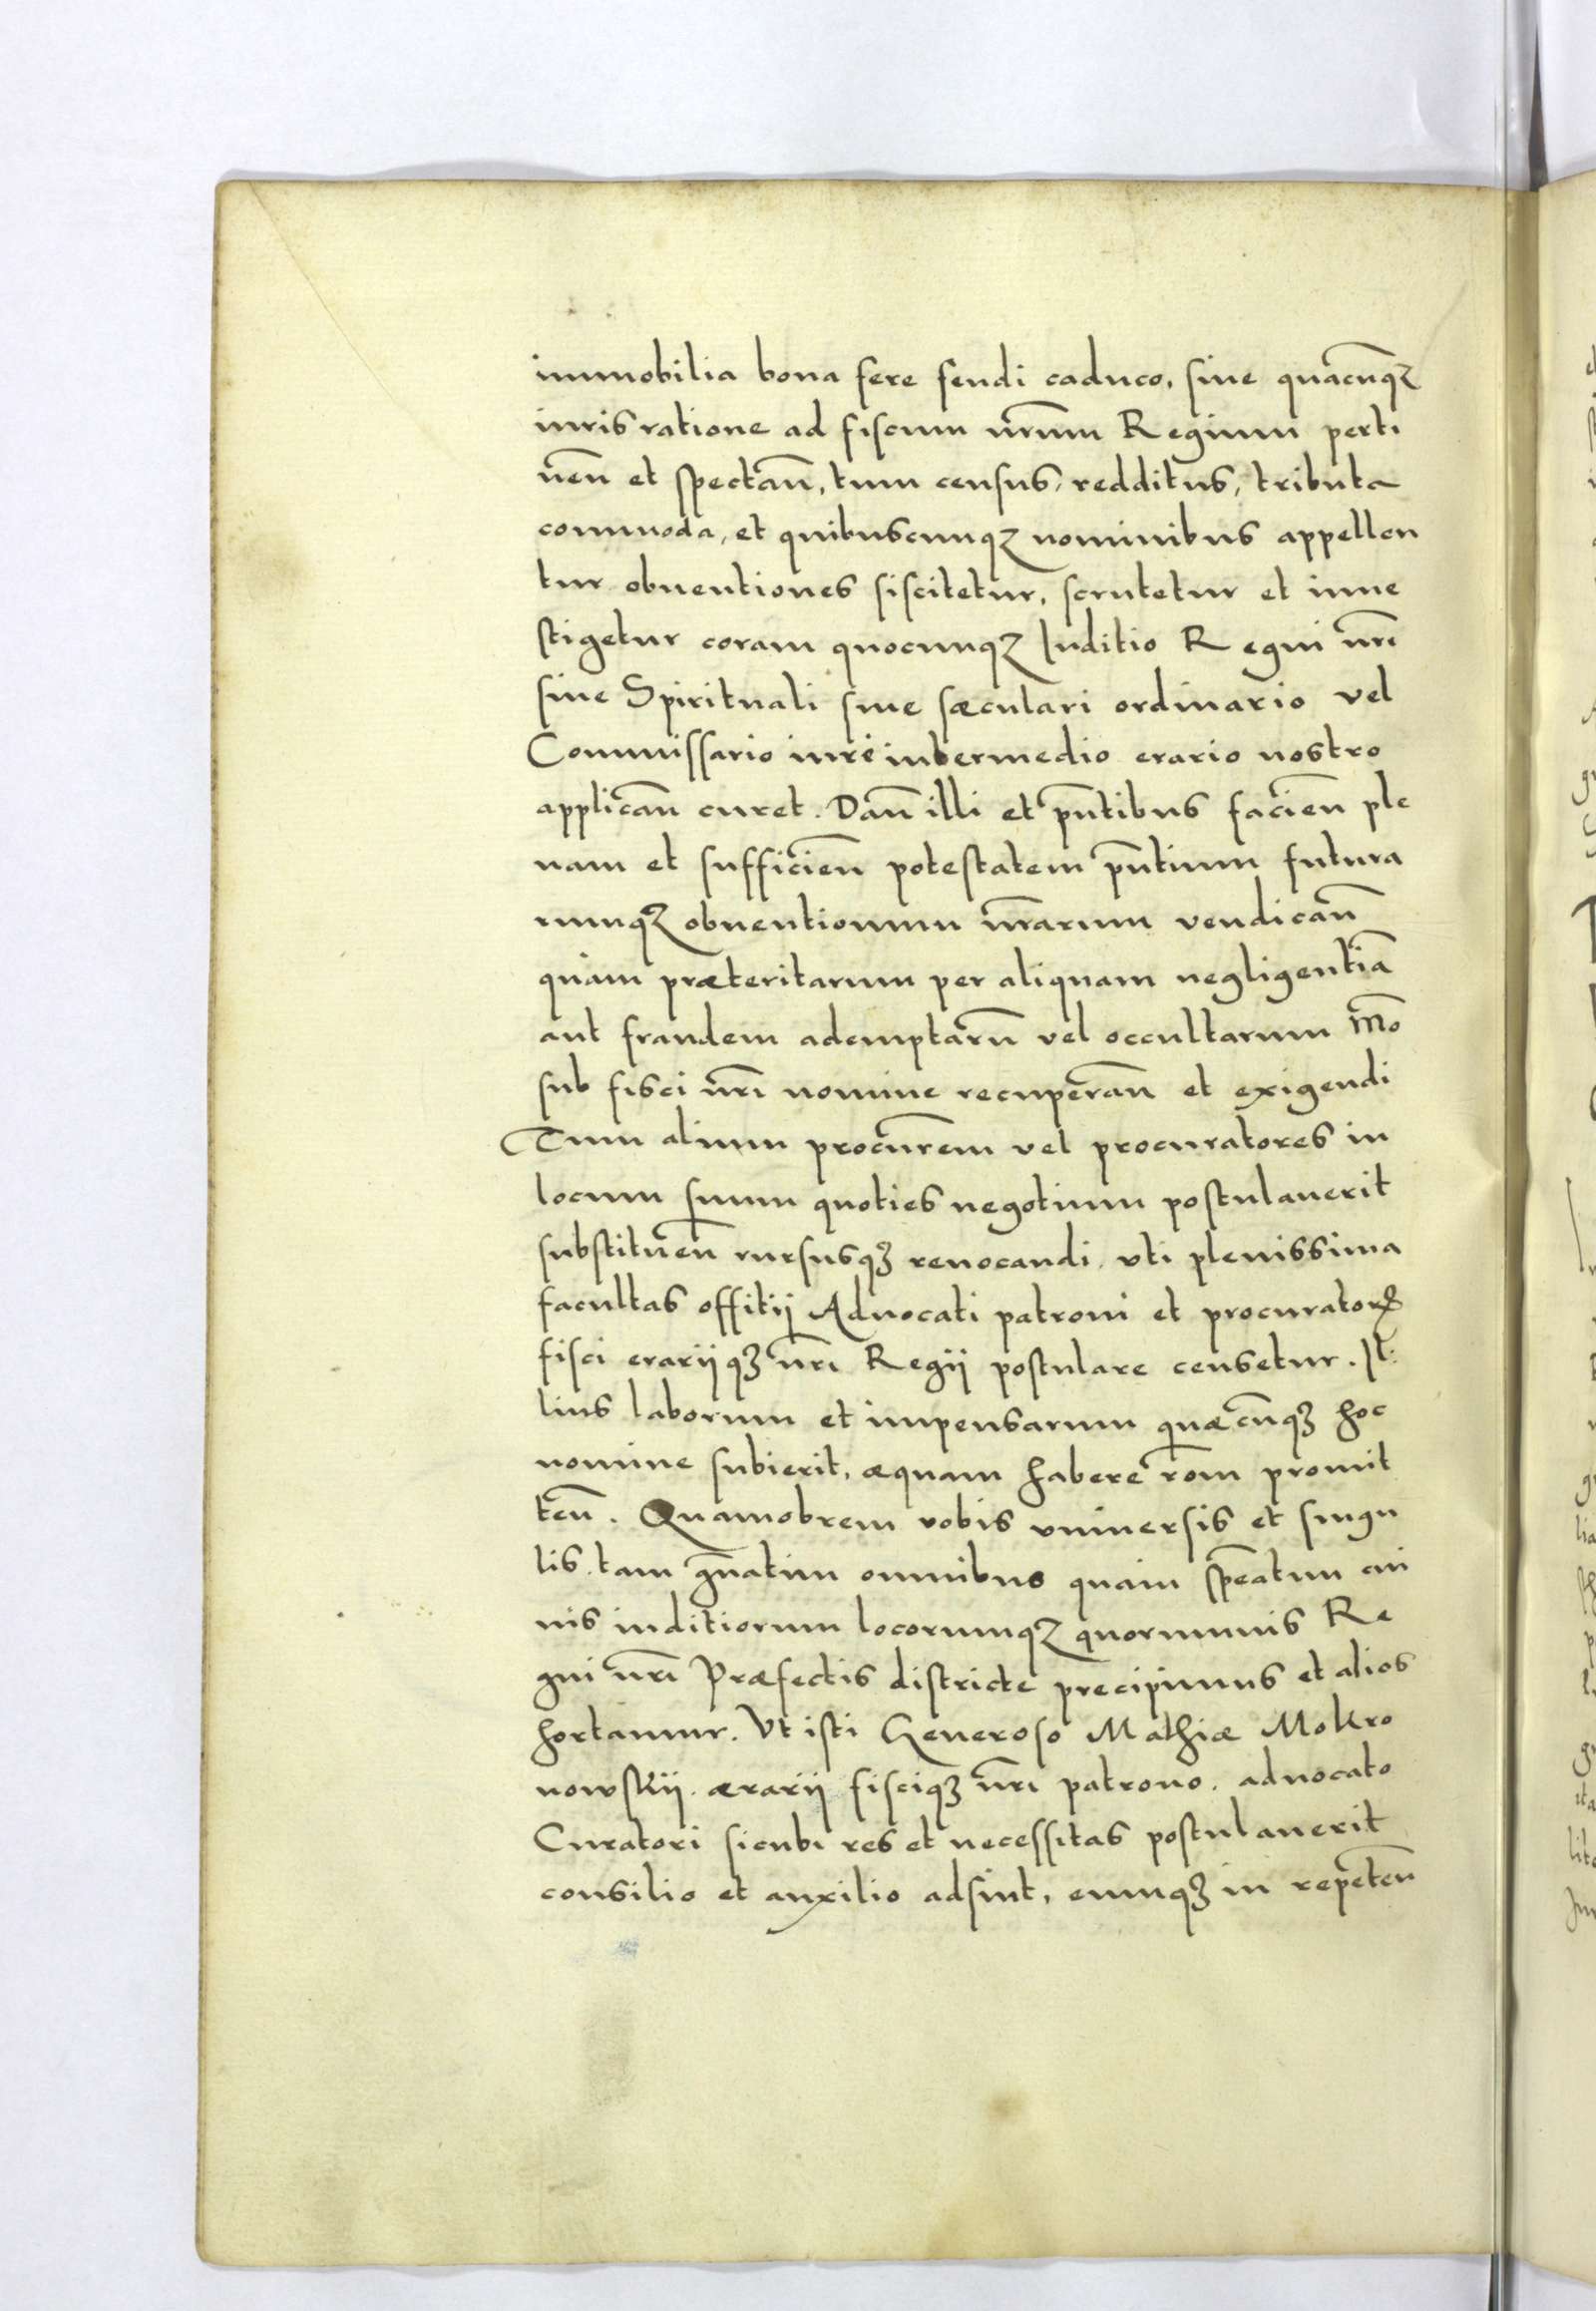 immobilia bona fere feudi caduco, siue quacũqꝫ
iuris ratione ad fiscum nr̃um Regium perti
neñ et spectañ, tum census, redditus, tributa
commoda, et quibuscunqꝫ nominibus appellen
tur obuentiones siscitetur, scrutetur et inue
stigetur coram quocunqꝫ Iuditio Regni nr̃i
siue Spirituali siue sæculari ordinario vel
Commissario iure intermedio erario nostro
applicañ curet. Dañ illi et pñtibus facieñ ple
nam et sufficieñ potestatem pñtium futura
rumqꝫ obuentionum nr̃arum vendicañ
quàm præteritarum per aliquam negligentiã
aut fraudem ademptarũ vel occultarum mõ
sub fisci nr̃i nomine recuperañ et exigendi
Tum alium procur̃em vel procuratores in
locum suum quoties negotium postulauerit
substitueñ rursusqꝫ reuocandi. vti plenissima
facultas offitij Aduocati patroni et procurator̨
fisci erarijqꝫ nr̃i Regij postulare censetur. Il:
lius laborum et impensarum quæcũqꝫ hoc
nomine subierit, æquam habere rõm promit
teñ. Quamobrem vobis vniuersis et singu
lis. tam gñatim omnibus quàm sp̃eatim cui
uis iuditiorum locorumqꝫ quorumuis Re
gni nr̃i Præfectis districte precipimus et alios
hortamur. Vt isti Generoso Mathiæ Mokro
nowskij. ærarij fisciqꝫ nr̃i patrono. aduocato
Curatori sicubi res et necessitas postulauerit
consilio et auxilio adsint, eumqꝫ in repeteñ